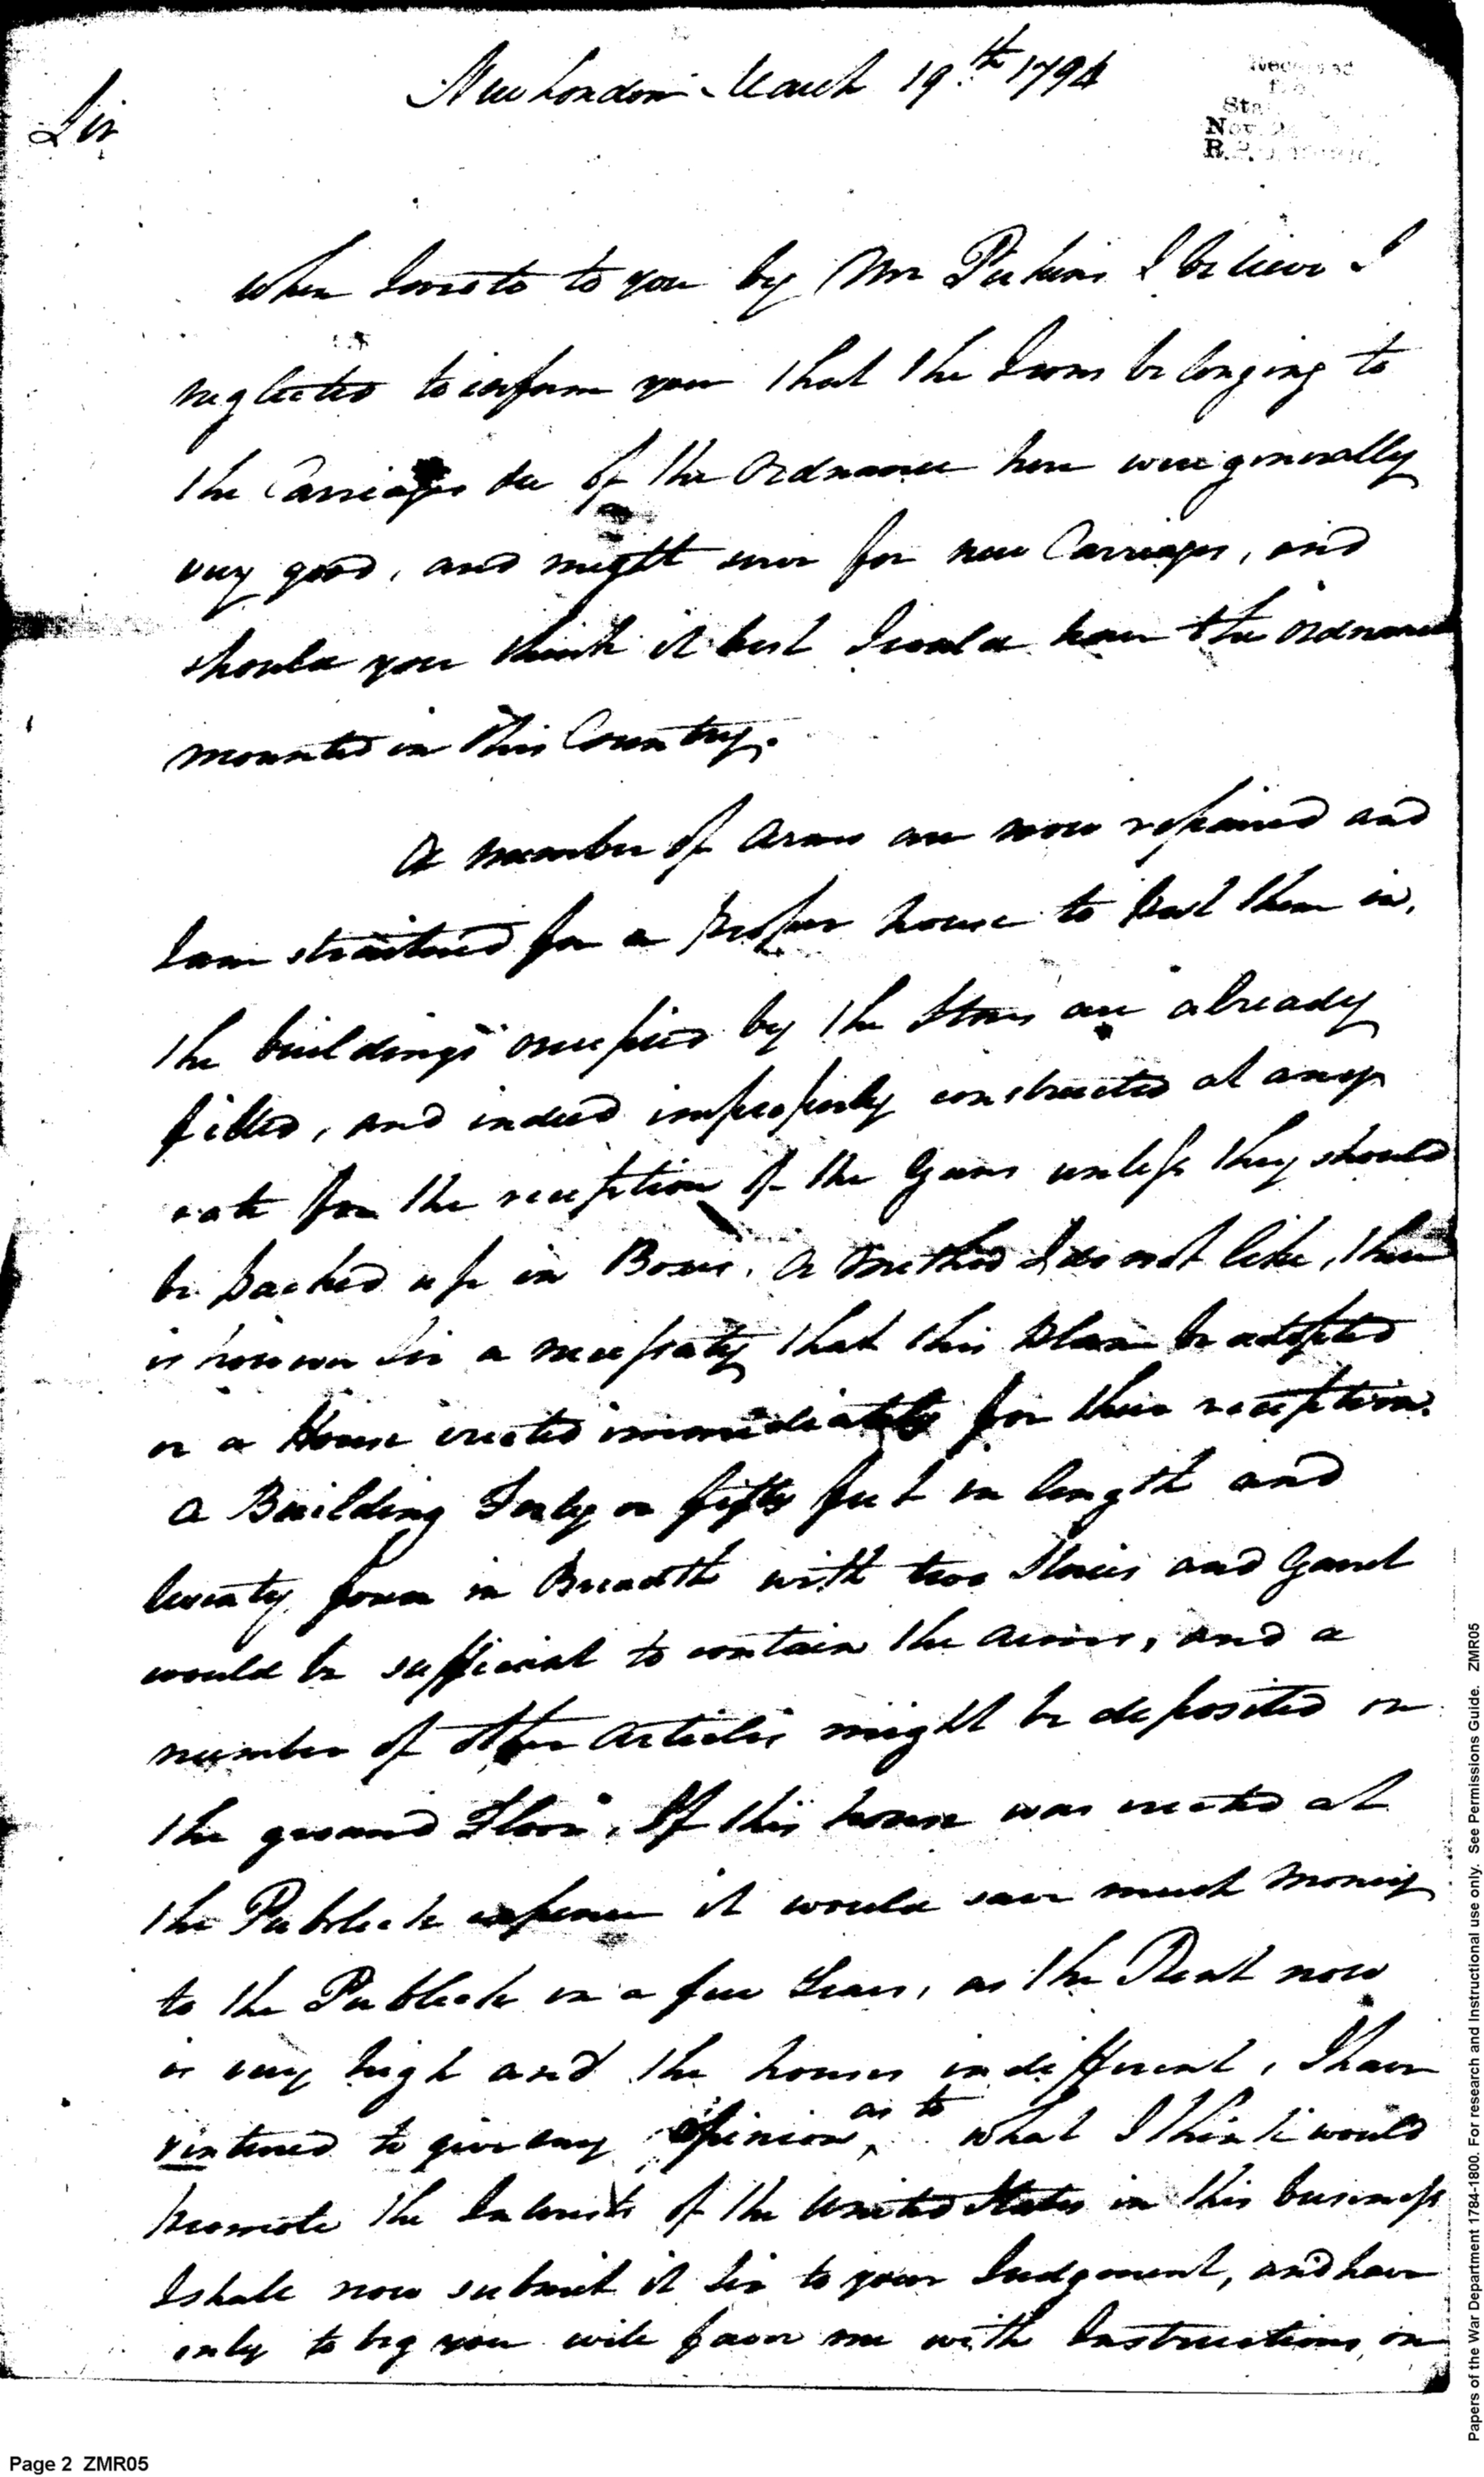 New London March 19.th 1794
Sir
when I wrote to you by Mr Perkins I believe I
neglected to inform you that the Irons belonging to
the Carriages &c of the Ordnance here were generally
very good, and might serve for new Carriages, and
should you think it best I could have the Ordnance
mounted in this Country.
A number of Arms are now repaired and
I am straitened for a proper house to put them in,
the buildings occupied by the Stores are already
filled, and indeed improperly constructed at any
rate for the reception of the Guns unless they should
be packed up in Boxes. a method I do not like, there
is however Sir a necessaty that this plan be adopted
or a House erected immediately for their reception.
a Building Forty or fifty feet in length and
twenty four in Breadth with two Stories and Garret
would be sufficient to contain the arms, and a
number of other articles might be deposited on
the ground Floor. If this house was erected at
the Publick expence it would save much Money
to the Publick in a few Years, as the Rent now
is very high and the houses indifferent, I have
ventured to give my opinion as to what I think would
promote the Interests of the United States in this business
I shall now submit it Sir to your Judgment, and have
only to beg you will favor me with Instructions on
Page 2 ZMR05
Papers of the War Department 1784-1800. For research and Instructional use only. See Permissions Guide. ZMR05